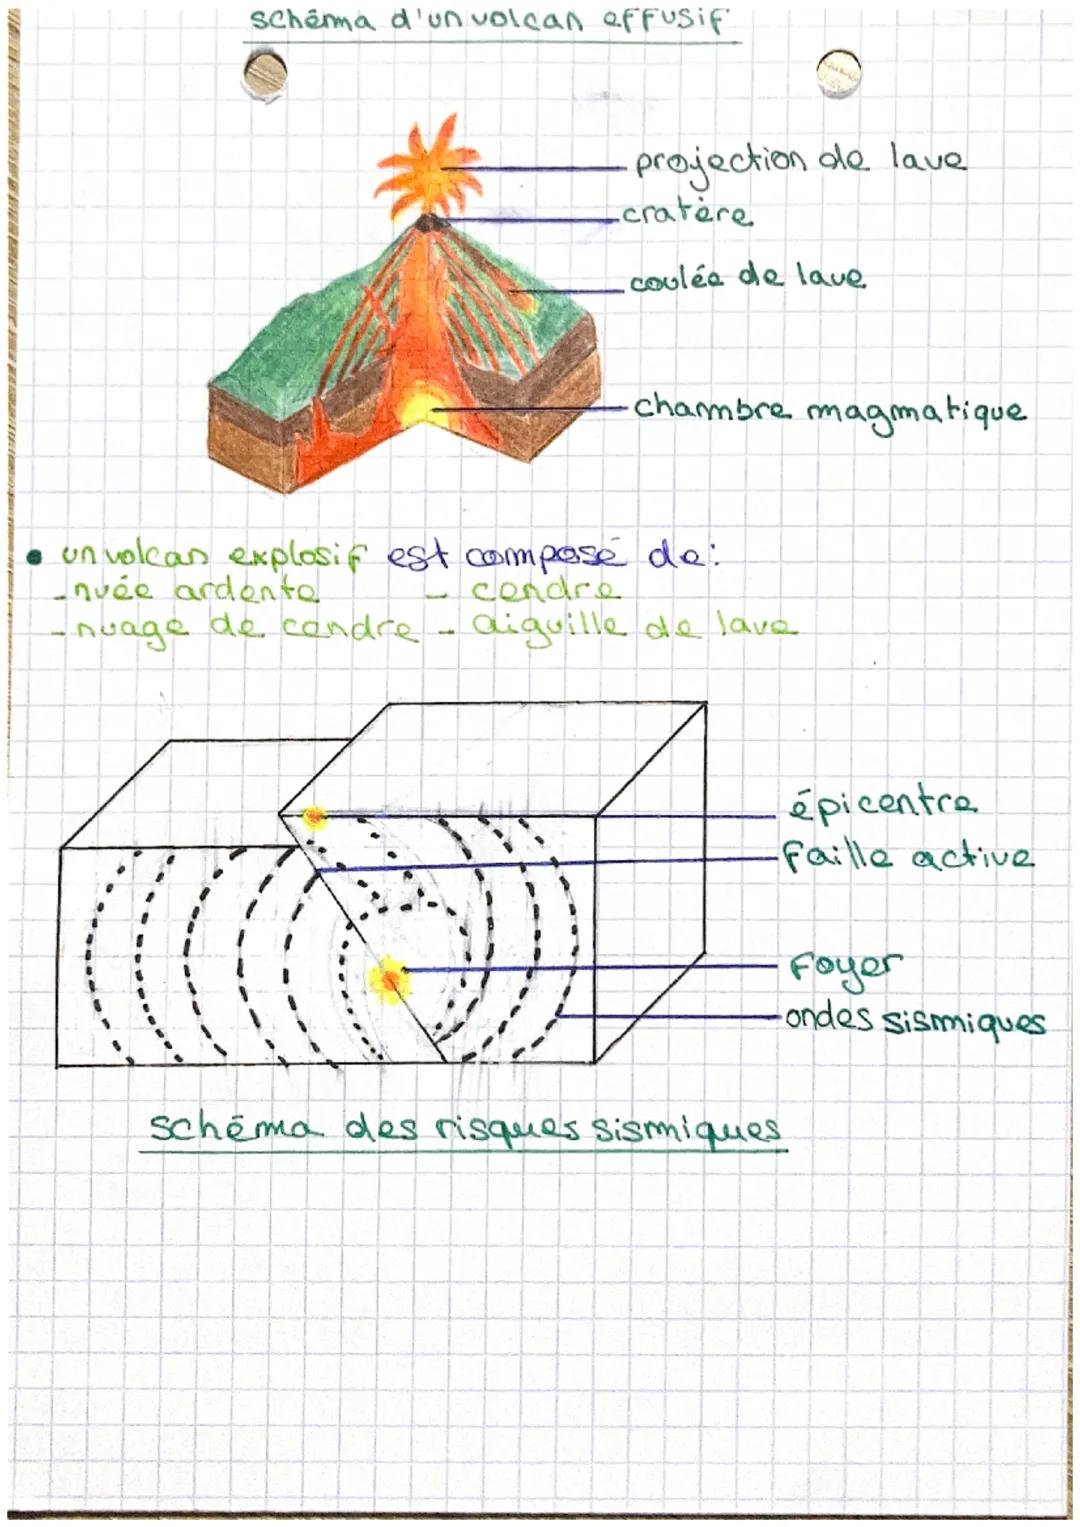 schéma d'un volcan effusif
projection de lave
cratère
coulée de lave
chambre magmatique
• un volcan explosif est composé de:
- nuée ardente - cendre
- nuage de cendre - aiguille de lave
épicentre
faille active
Foyer
ondes sismiques
schéma des risques sismiques